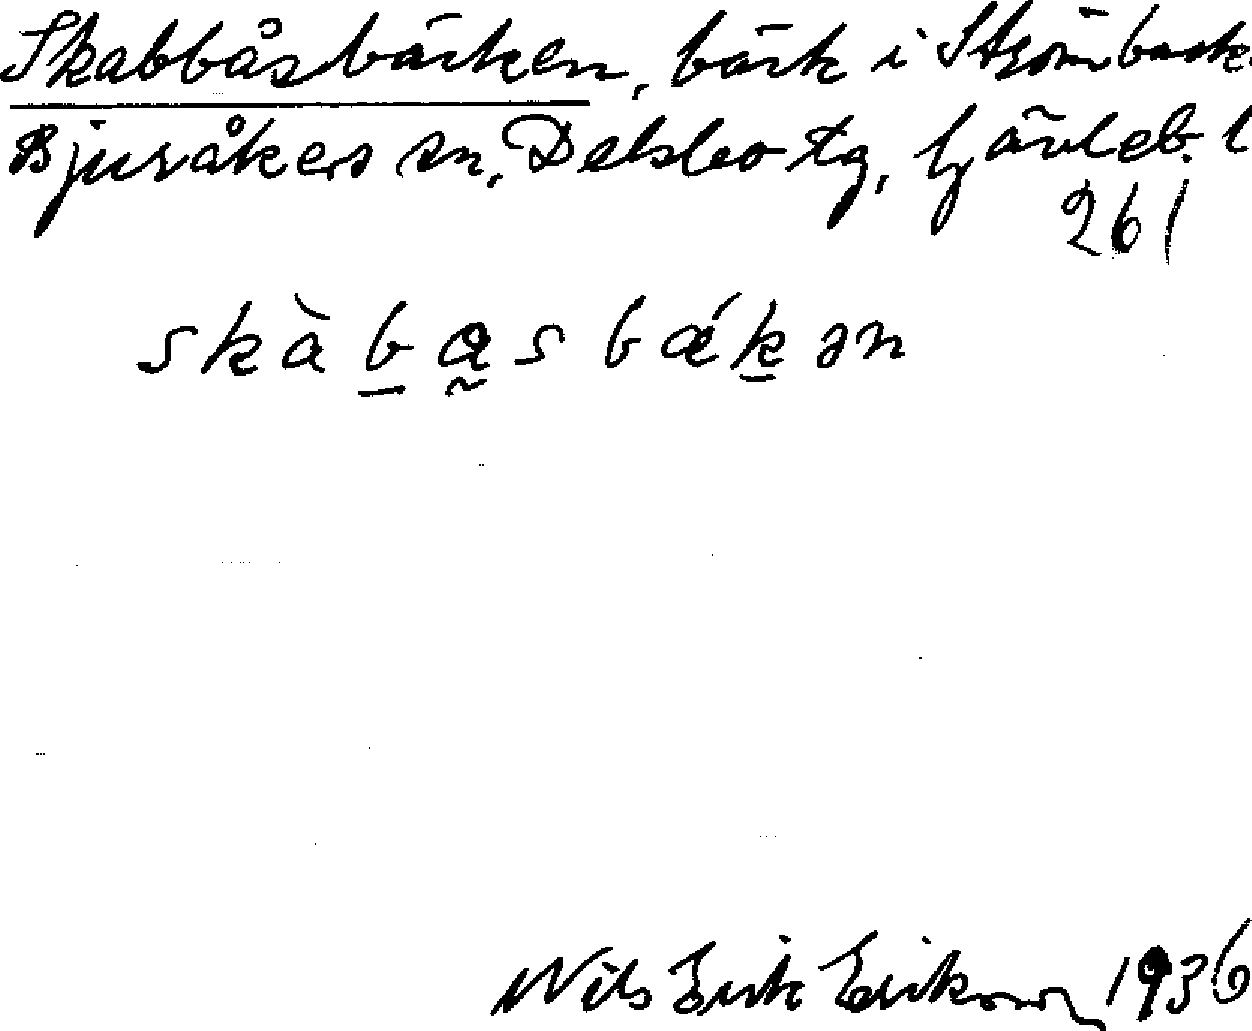 Skabbåsbäcken, bäck i Strömback.
Bjuråkers sn, Delsbo tg, Gävleb. l
261
skàbasbǽkən
Nils Erik Erikson 1936